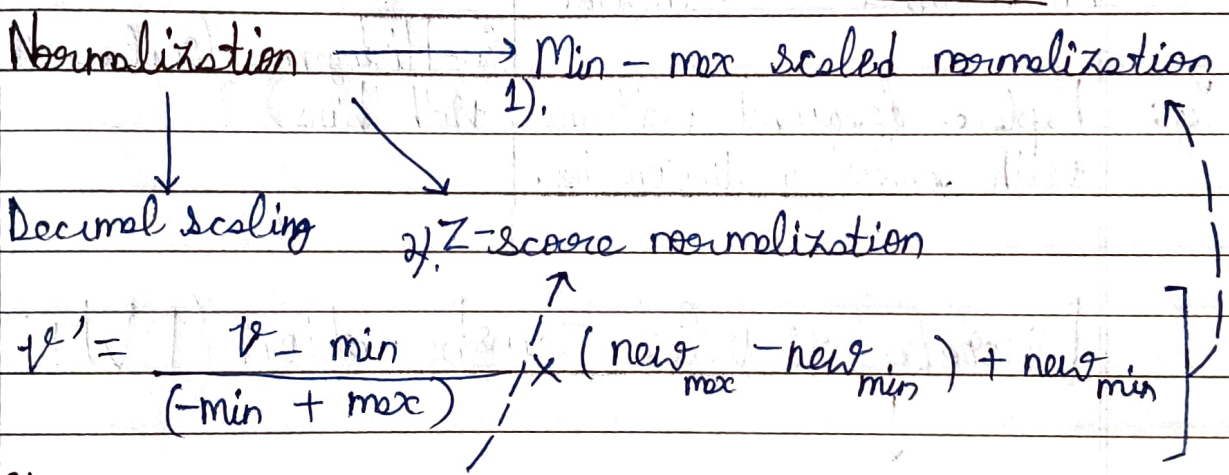 Normalization → Min - max scaled normalization
1).
Decimal scaling 2). Z-score normalization
v' = v - min / (-min + max) × (new max - new min) + new min ]